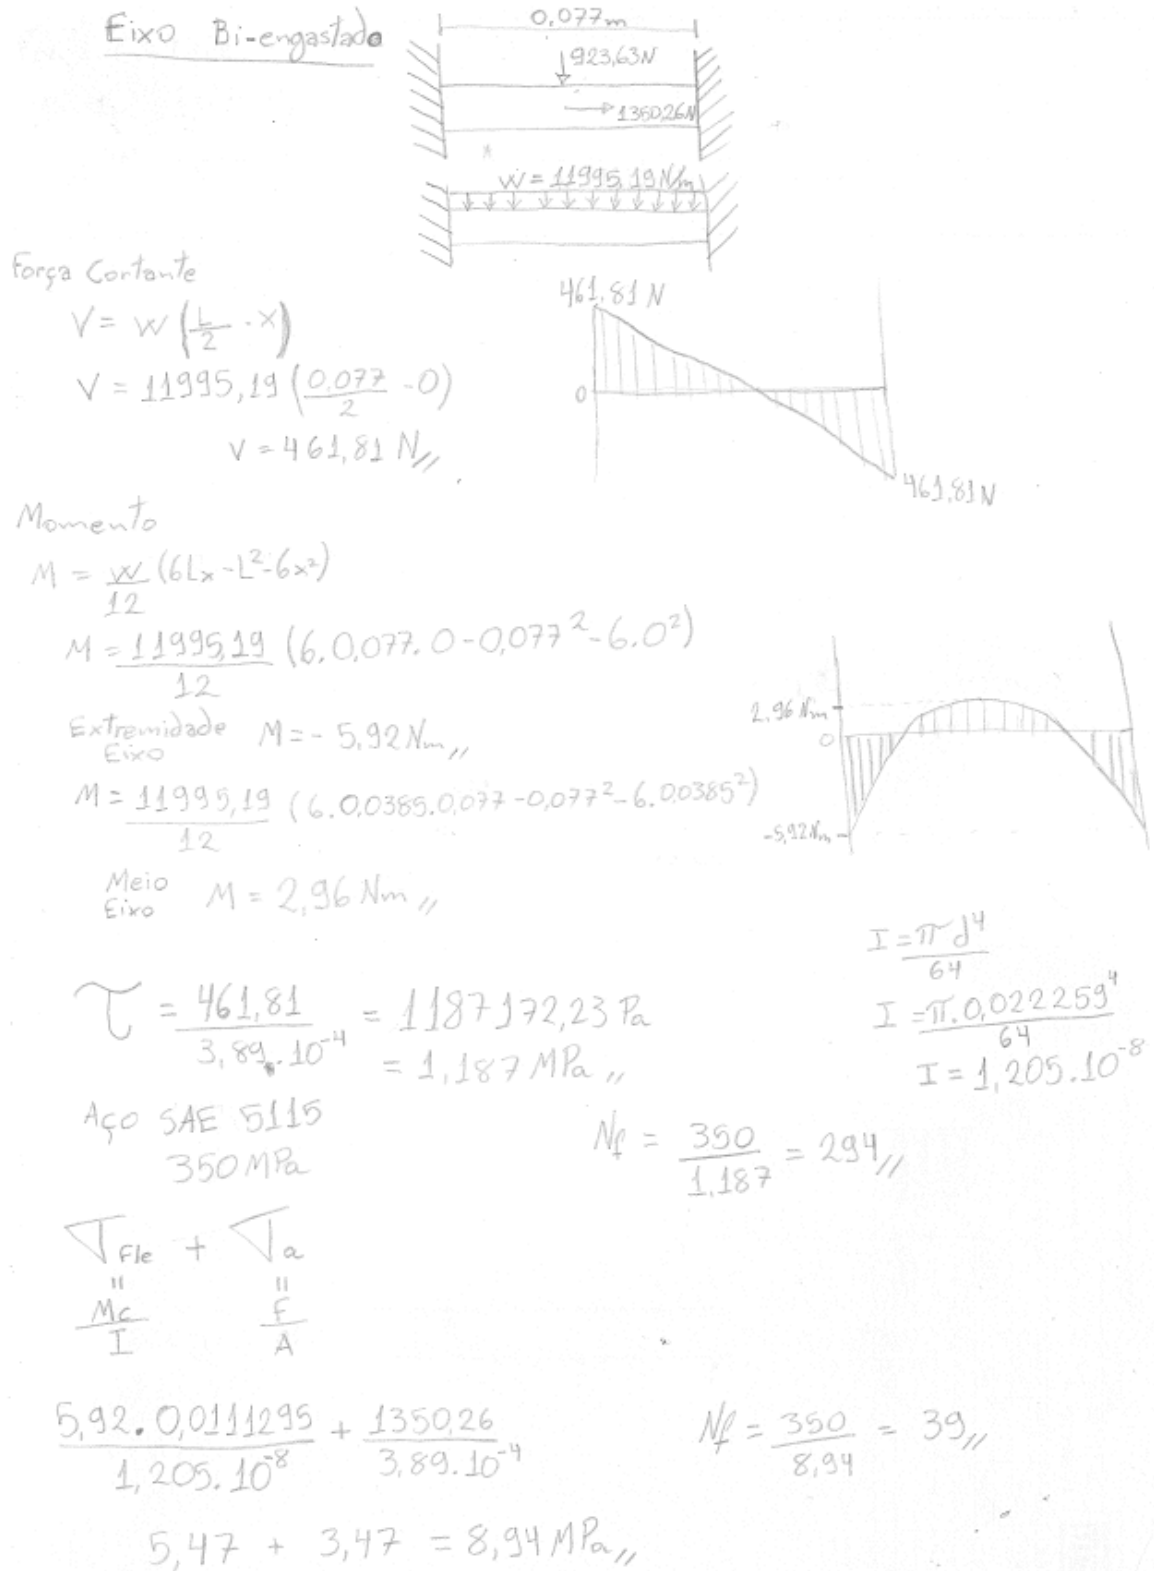 Eixo Bi-engastado
0,077m
923,63N
1350,26N
W = 11995,19 N/m
Força Cortante
V = W (L/2 - x)
V = 11995,19 (0,077/2 - 0)
V = 461,81 N//
461,81 N
0
461,81 N
Momento
M = W/12 (6Lx - L² - 6x²)
M = 11995,19/12 (6.0,077.0 - 0,077² - 6.0²)
Extremidade Eixo M = - 5,92 Nm//
M = 11995,19/12 (6.0,0385.0,077 - 0,077² - 6.0,0385²)
Meio Eixo M = 2,96 Nm//
2,96 Nm
0
-5,92 Nm
I = πd⁴/64
I = π.0,022259⁴/64
I = 1,205.10⁻⁸
τ = 461,81/3,89.10⁻⁴ = 1187172,23 Pa
= 1,187 MPa//
Aço SAE 5115
350 MPa
Nf = 350/1,187 = 294//
σFle + σa
= =
Mc/I F/A
5,92.0,0111295/1,205.10⁻⁸ + 1350,26/3,89.10⁻⁴
Nf = 350/8,94 = 39//
5,47 + 3,47 = 8,94 MPa//